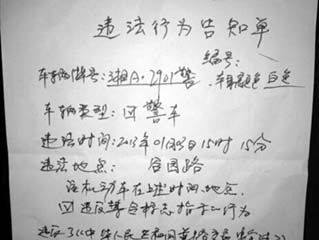 违法行为告知单
编号:
车辆牌号:湘A·2901警 车身颜色 白色
车辆类型:囗警车
违法时间:2013年01月03日15时15分
违法地点: 谷园路
该机动车在上述时间、地点,
☑违反禁令标志指示行为
违反了《中华人民共和国道路交通安全法》